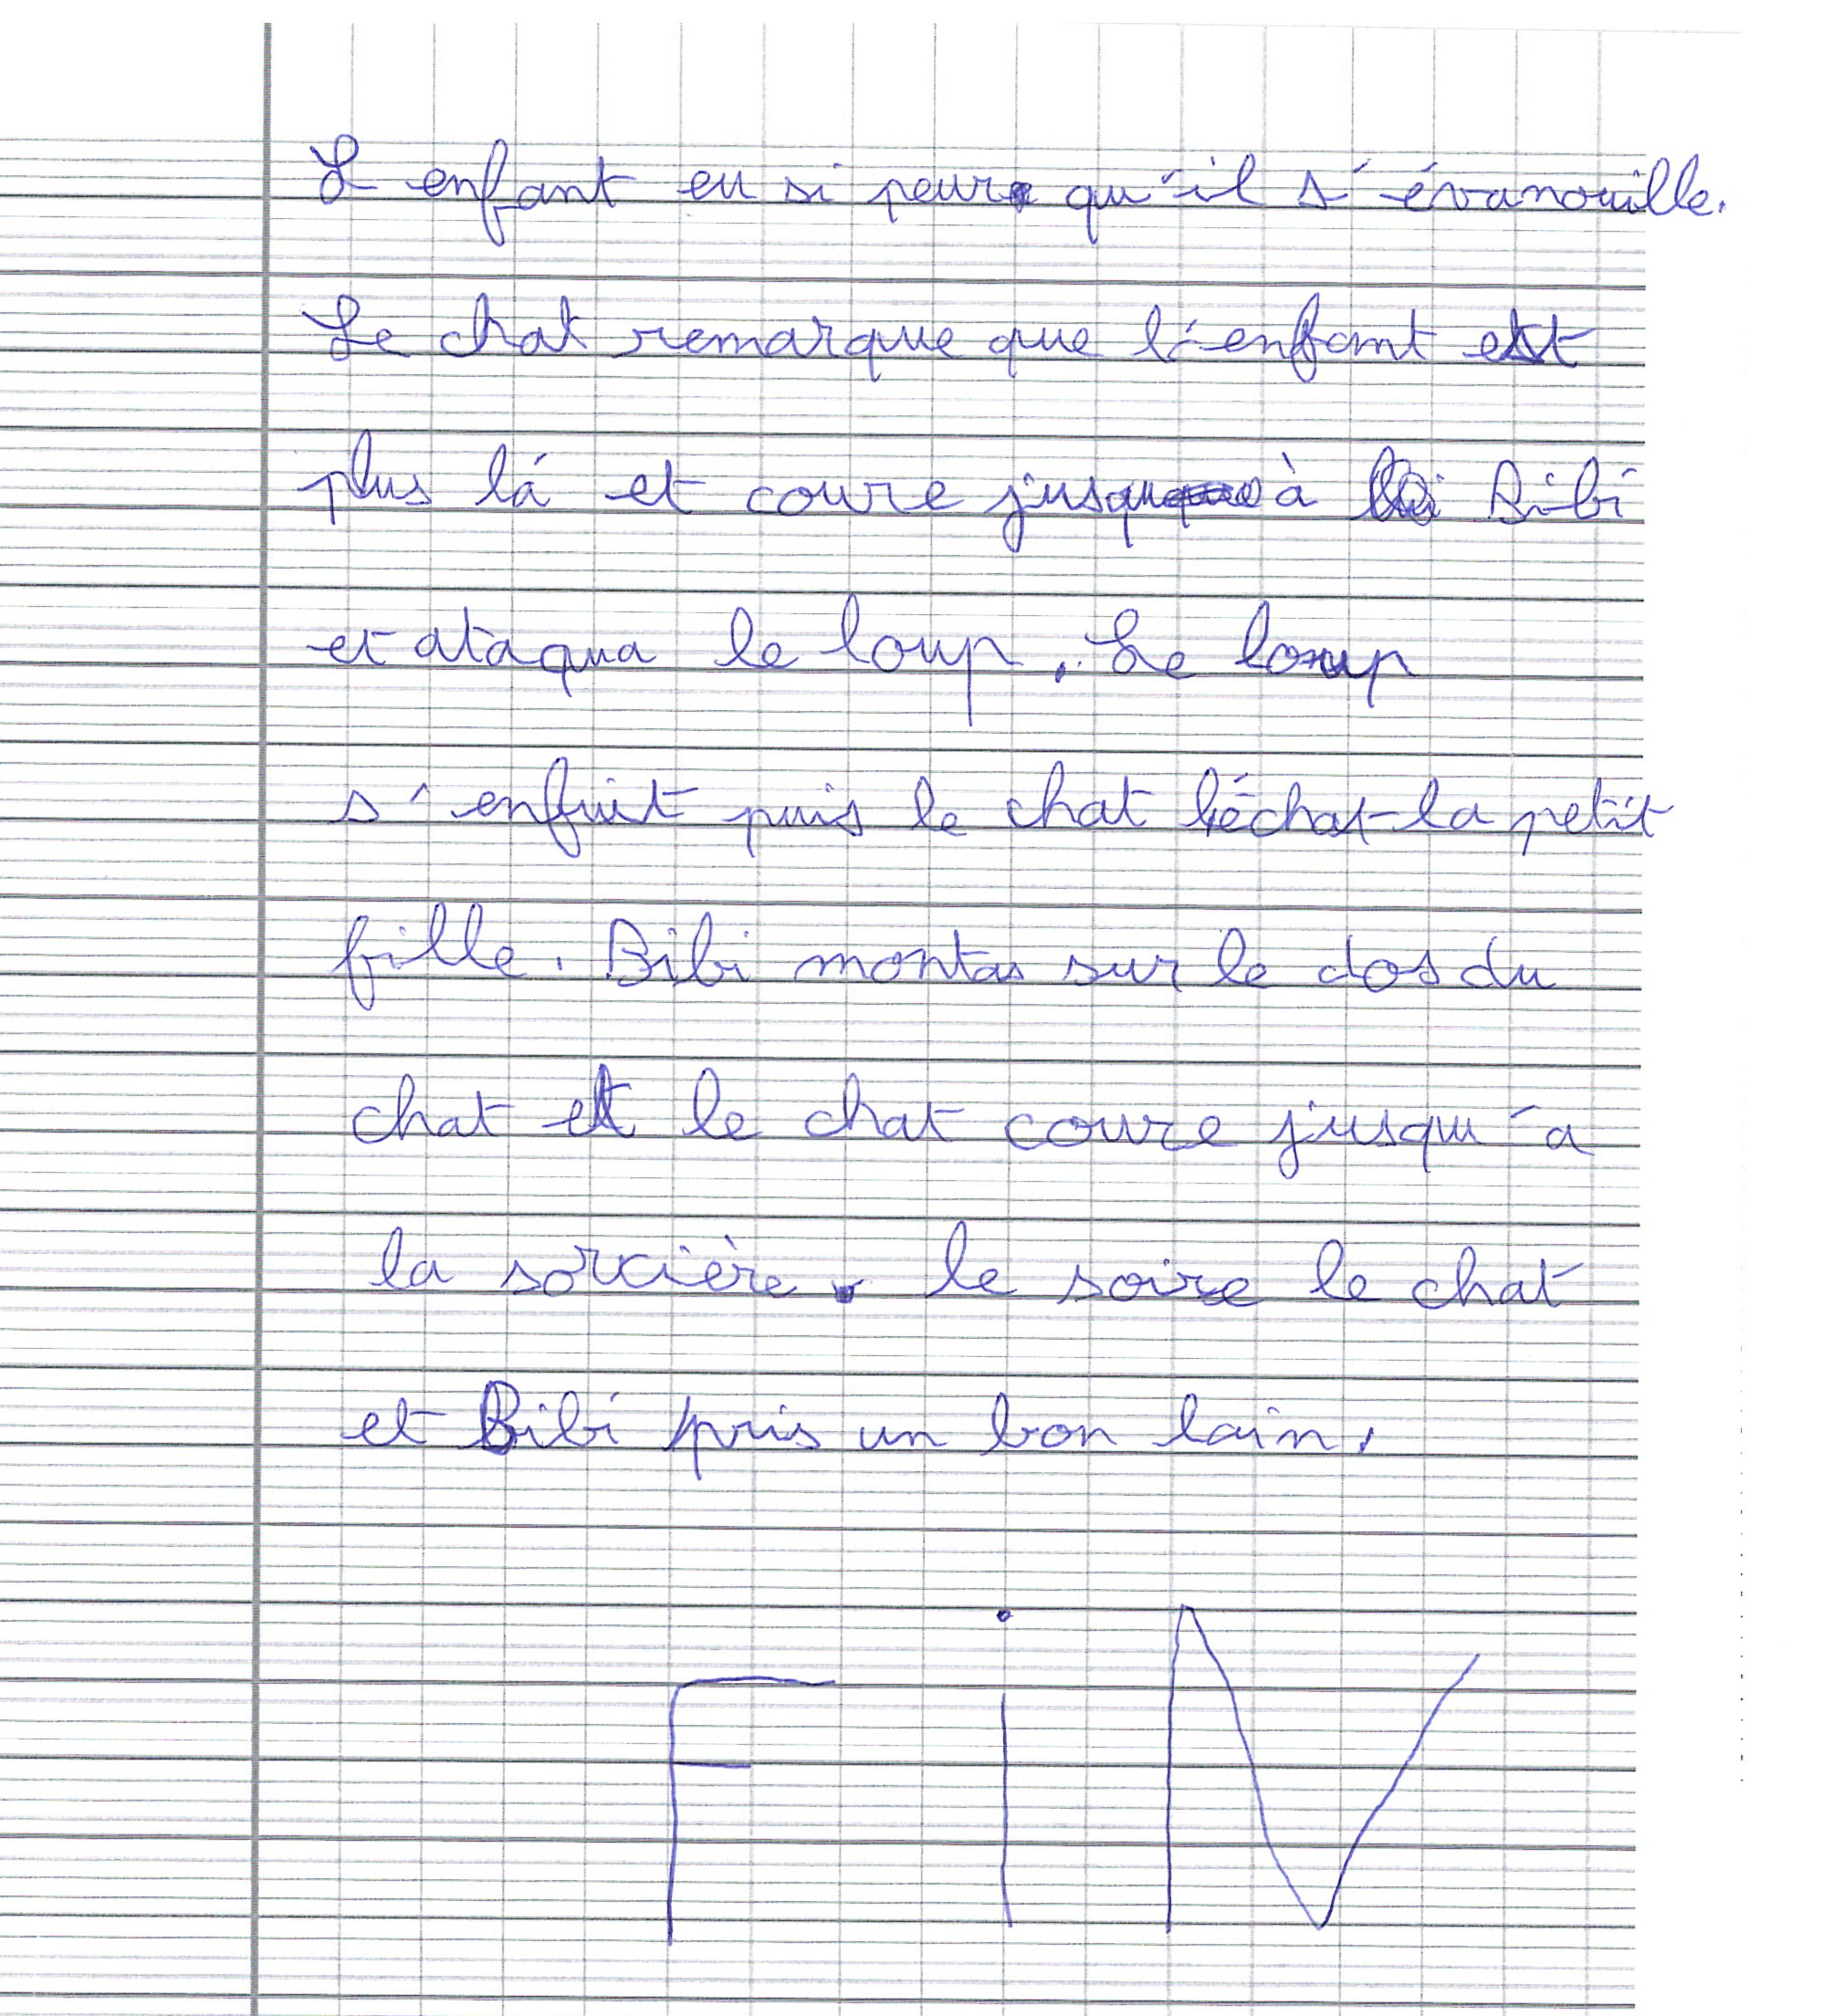 L enfant eu si peur qu'il s'évanouille.
Le chat remarque que l'enfant est
plus là et coure jusqu à Bibi
et ataqua le loup. Le loup
s'enfuit puis le chat léchat la petit
fille. Bibi montas sur le dos du
chat et le chat coure jusqu'a
la sorcière. le soire le chat
et Bibi pris un bon bain.
FiN